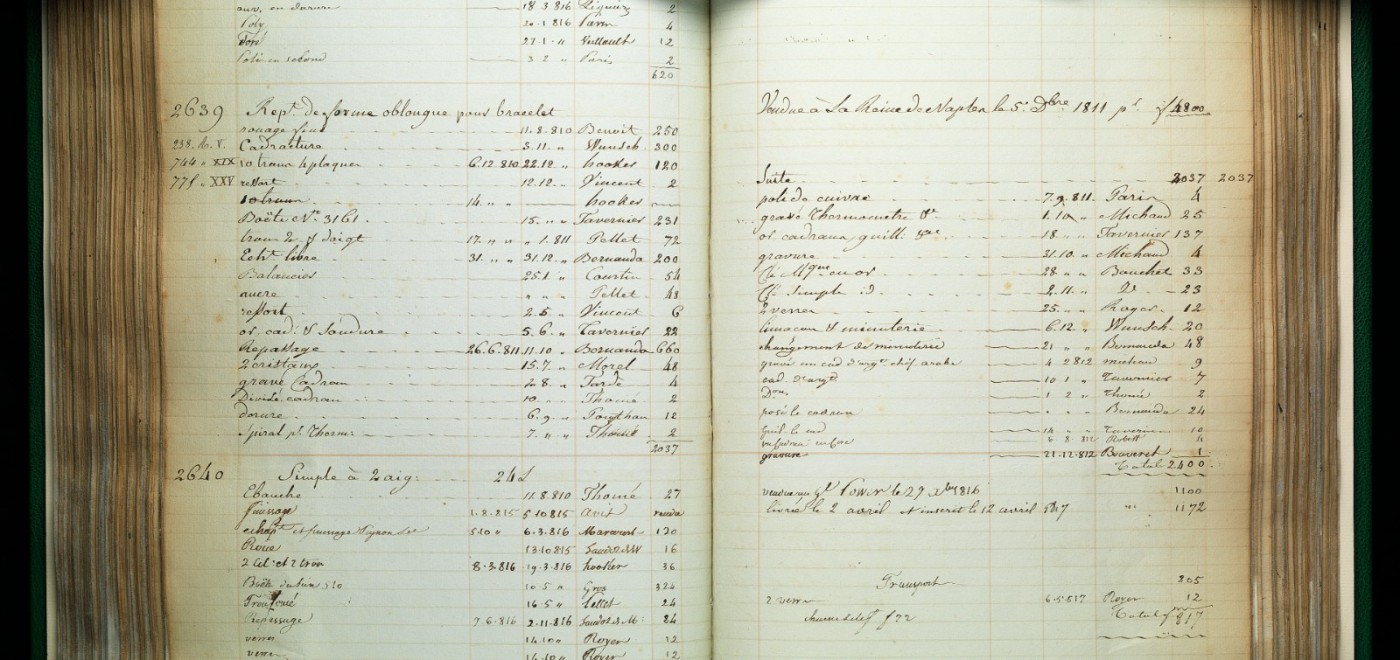 18 3 816 2
Poly 20 . 1 . 816 4
Doré 22 . 1 . " 12
3 2 " Paris 2
620
2639 Rept. de forme oblongue pour bracelet
rouage fini 11 . 8 . 810 Benoit 250
238. Cadrature 3 . 11 . " Wunsch 300
744 " XIX 10 trous 4 plaques 6.12.810 22.12. " hookes 120
771 . XXV ressort 12.12. " Vincent 2
10 trous 14. " hookes
Boëte No. 3161 . 15. " " Tavernier 231
trous 2 & doigt 17. " " " 1 . 811 Pellet 72
Echt. libre 31. " " 31.12. " Bernauda 200
Balancier 25.1 " Courtin 54
ancre " " " Pellet 48
ressort 2 . 5 . " Vincent 6
or. cad. & Soudure 5 . 6 . " Tavernier 22
Repassage 26.6.811. 11.10 . " Bernauda 660
2 cristaux 15.7. " Morel 48
gravé Cadran 2 8. " Tarde 4
Divisé cadran 10. " " Thomé 2
dorure 6 . 9 . " 12
Spiral pr. Therm: 7 . " " Thomé 2
2037
2640 Simple à 2 aig: 24 L
Ebauche 11.8.810 Thomé 27
finissage 1.8.815 5 10 815
5 10 " 6 . 3 . 816 120
Roue 13 10 815 16
2 trou 8.3.816 19.3.816 hooker 36
Boëte 10 . 5 " Gros 324
16 5 " Pellet 24
Repassage 7.6.816 2.11.816 84
verre 14.10 " Royer 12
verre 14.10 " Royer 12
Vendue à La Reine de Naples le 5. Dbre 1811 pr. f 4800
Suite 2037 2037
poli de cuivre 7.9.811. Paris 4
gravé Thermometre 1.10. " Michaud 25
or, cadrans, guill. 18. " " Tavernier 137
gravure 31.10. " Michaud 4
Clé Mque en or 28. " " Bouchet 33
Clé Simple id . 2.11. " D. 23
2 verres 25. " " Royer 12
limaçon & minuterie 6.12. " Wunsch. 20
changement de minuterie 21 " " Bernauda 48
gravé un cad d'argt chif. arabe 4 2 812 michau 9
cad. d'argt 10 1 " Tavernier 7
1 2 " Thomé 2
posé le cadran " " " Bernauda 24
14 " " Tavernier 10
6 8 . 812 Robett 4
gravure 21.12.812 Boaveret 1
Total 2400
vendue au Gl. Power le 29 Xbre 816 1100
livré le 2 avril et inscrit le 12 avril 817 " 1172
Transport 805
2 verre 6.5.817 Royer 12
Total f 817
f 72